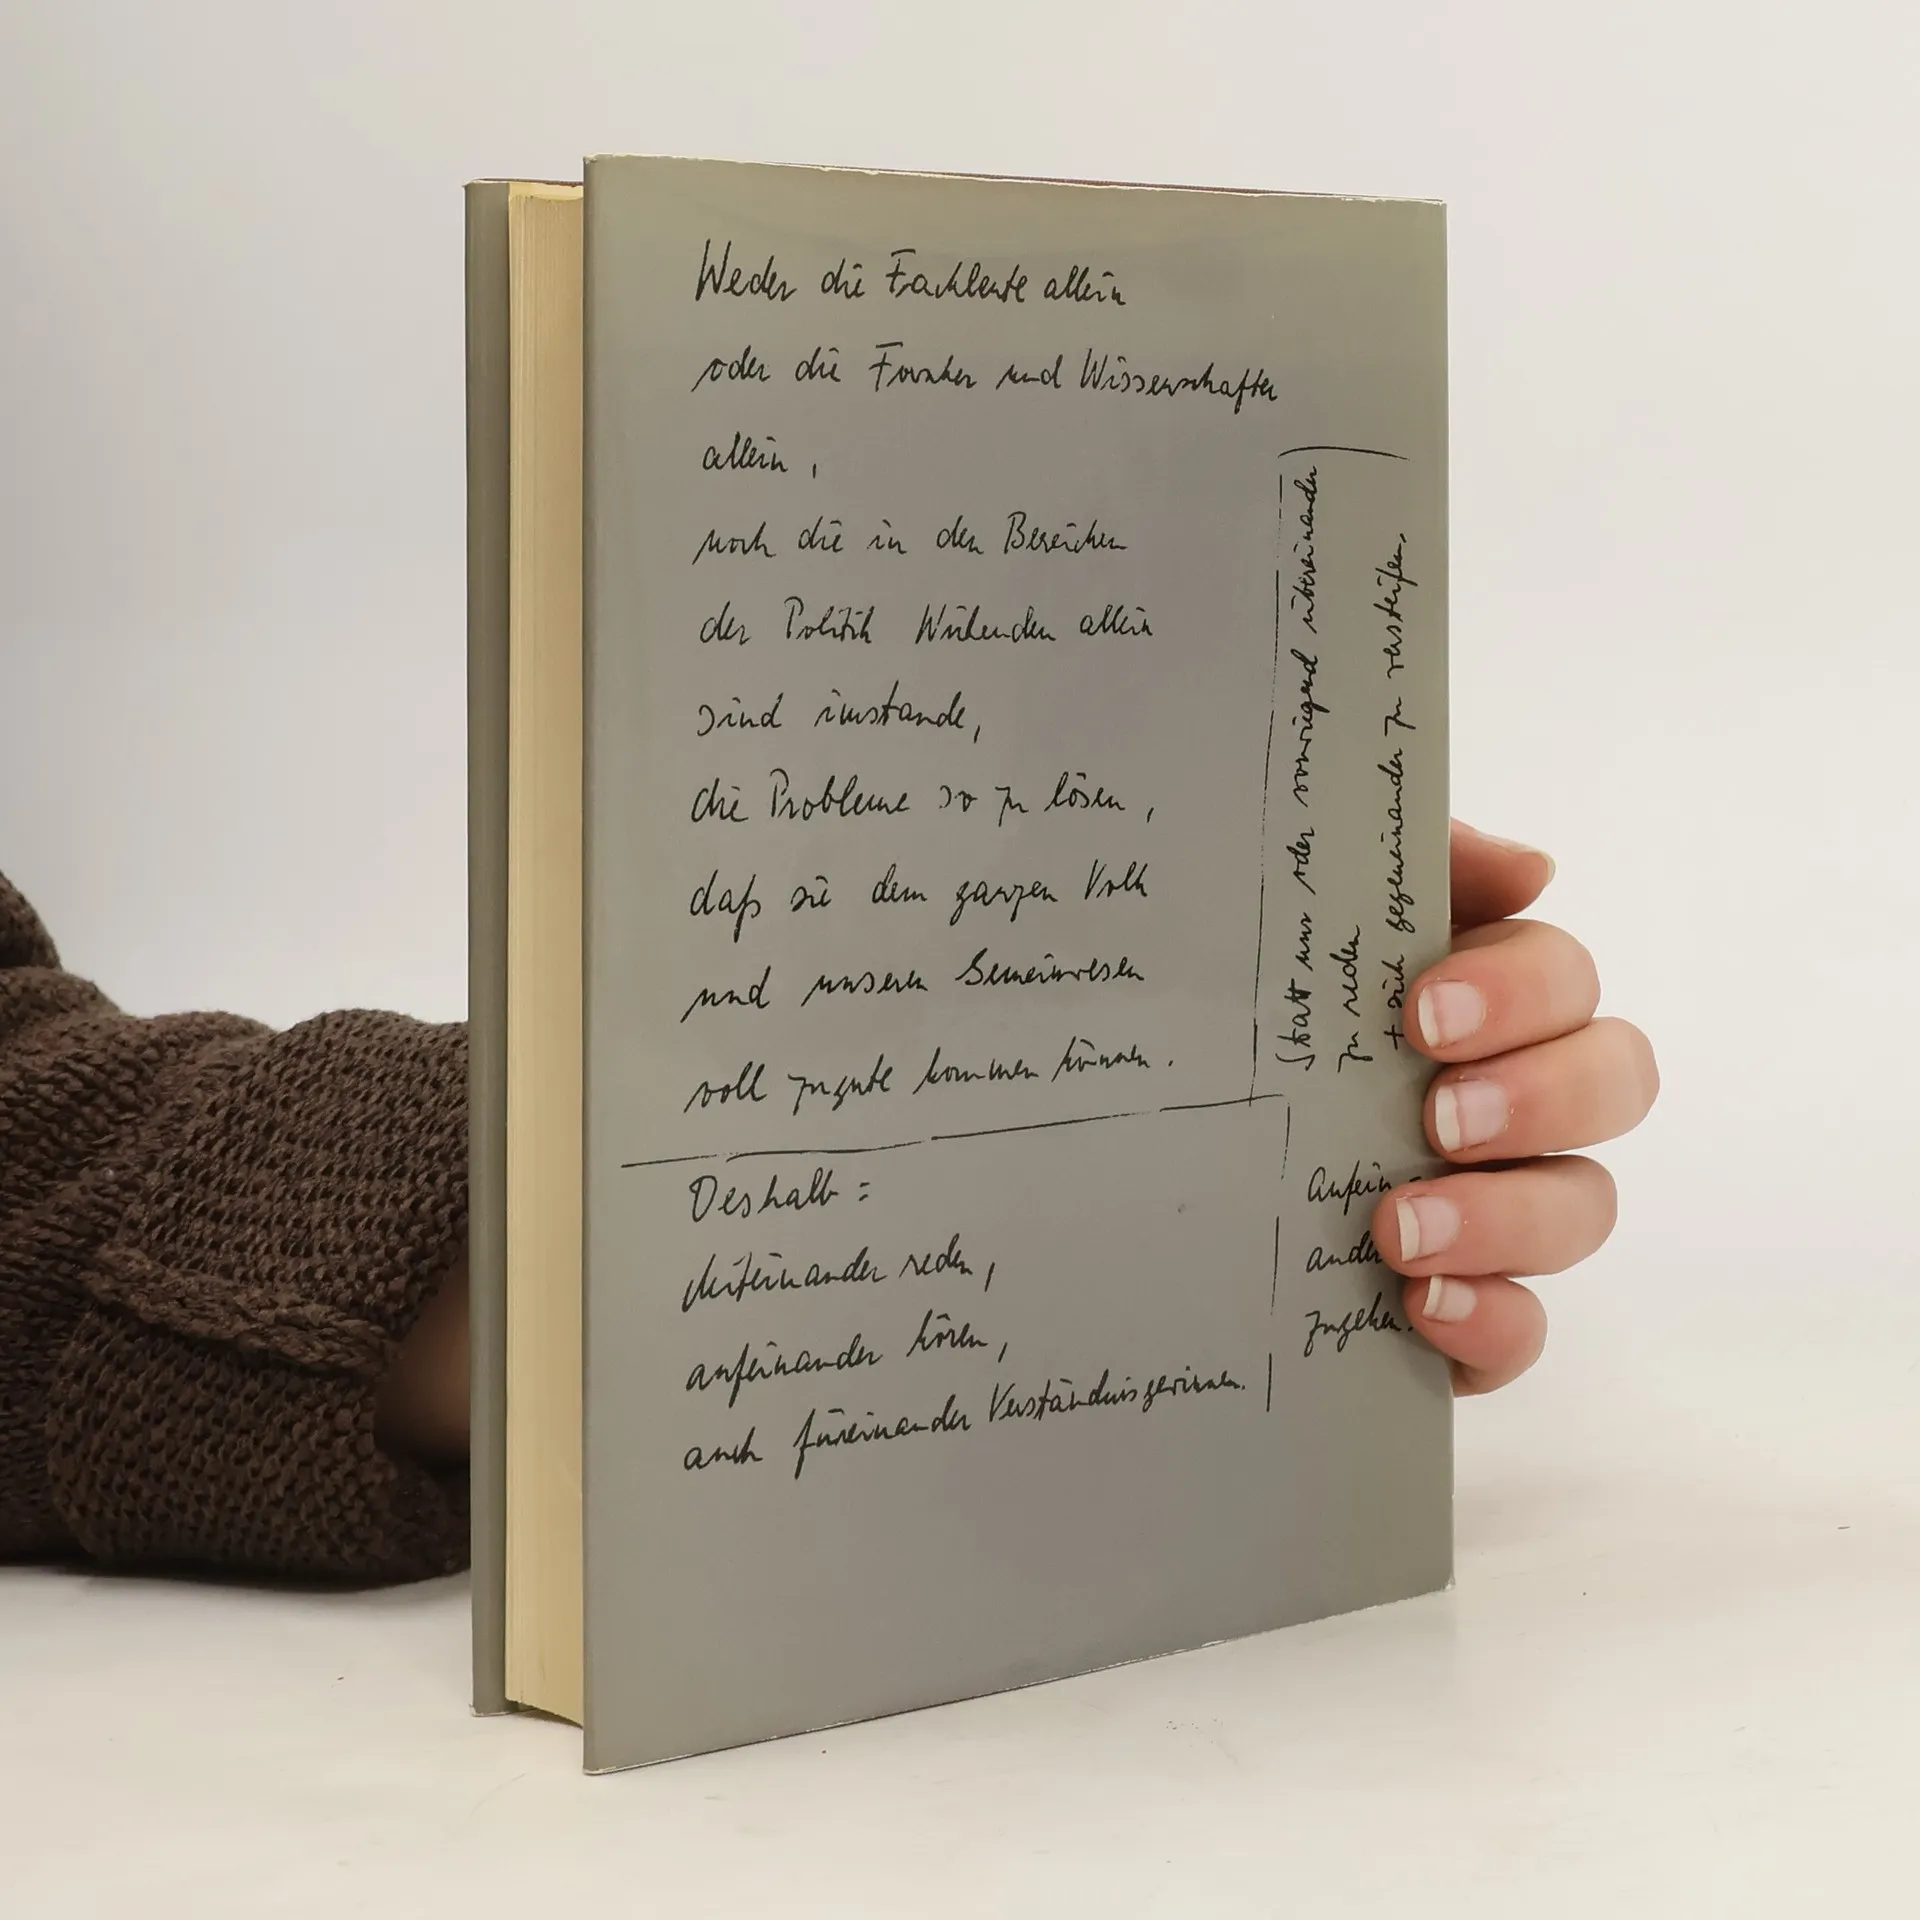 Weder die Fachleute allein
oder die Forscher und Wissenschafter
allein,
noch die in den Bereichen
der Politik Wirkenden allein
sind imstande,
die Probleme so zu lösen,
daß sie dem ganzen Volk
und unseren Gemeinwesen
voll zugute kommen können.
Statt nur oder vorwiegend übereinander
zu reden
+ sich gegeneinander zu versteifen.
Deshalb:
Miteinander reden,
aufeinander hören,
auch füreinander Verständnis gewinnen.
Aufein-
ander
zugehen.